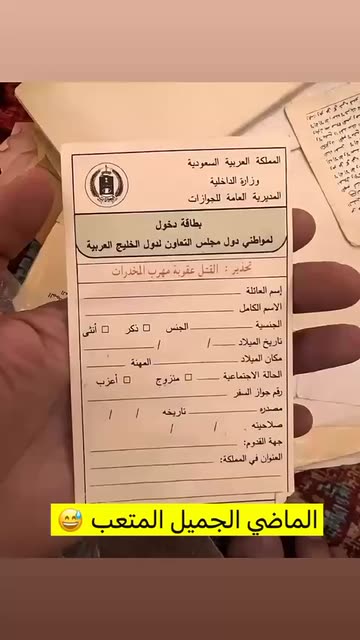 المملكة العربية السعودية
وزارة الداخلية
المديرية العامة للجوازات
بطاقة دخول
لمواطني دول مجلس التعاون لدول الخليج العربية
تحذير : القتل عقوبة مهرب المخدرات
إسم العائلة
الاسم الكامل
الجنسية الجنس □ ذكر □ أنثى
تاريخ الميلاد / /
مكان الميلاد المهنة
الحالة الاجتماعية □ متزوج □ أعزب
رقم جواز السفر
مصدره تاريخه / /
صلاحيته / /
جهة القدوم:
العنوان في المملكة:
الماضي الجميل المتعب 😅